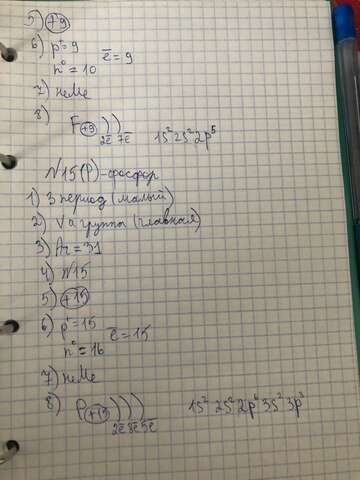 5) +9
6) p⁺ = 9 ē = 9
n⁰ = 10
7) неМе
8)
F +9 ) ) 1s² 2s² 2p⁵
2ē 7ē
N15 (P) - фосфор
1) 3 период (малый)
2) V а группа (главная)
3) Ar = 31
4) N15
5) +15
6) p⁺ = 15 ē = 15
n⁰ = 16
7) неМе
8) P +15 ) ) ) 1s² 2s² 2p⁶ 3s² 3p³
2ē 8ē 5ē